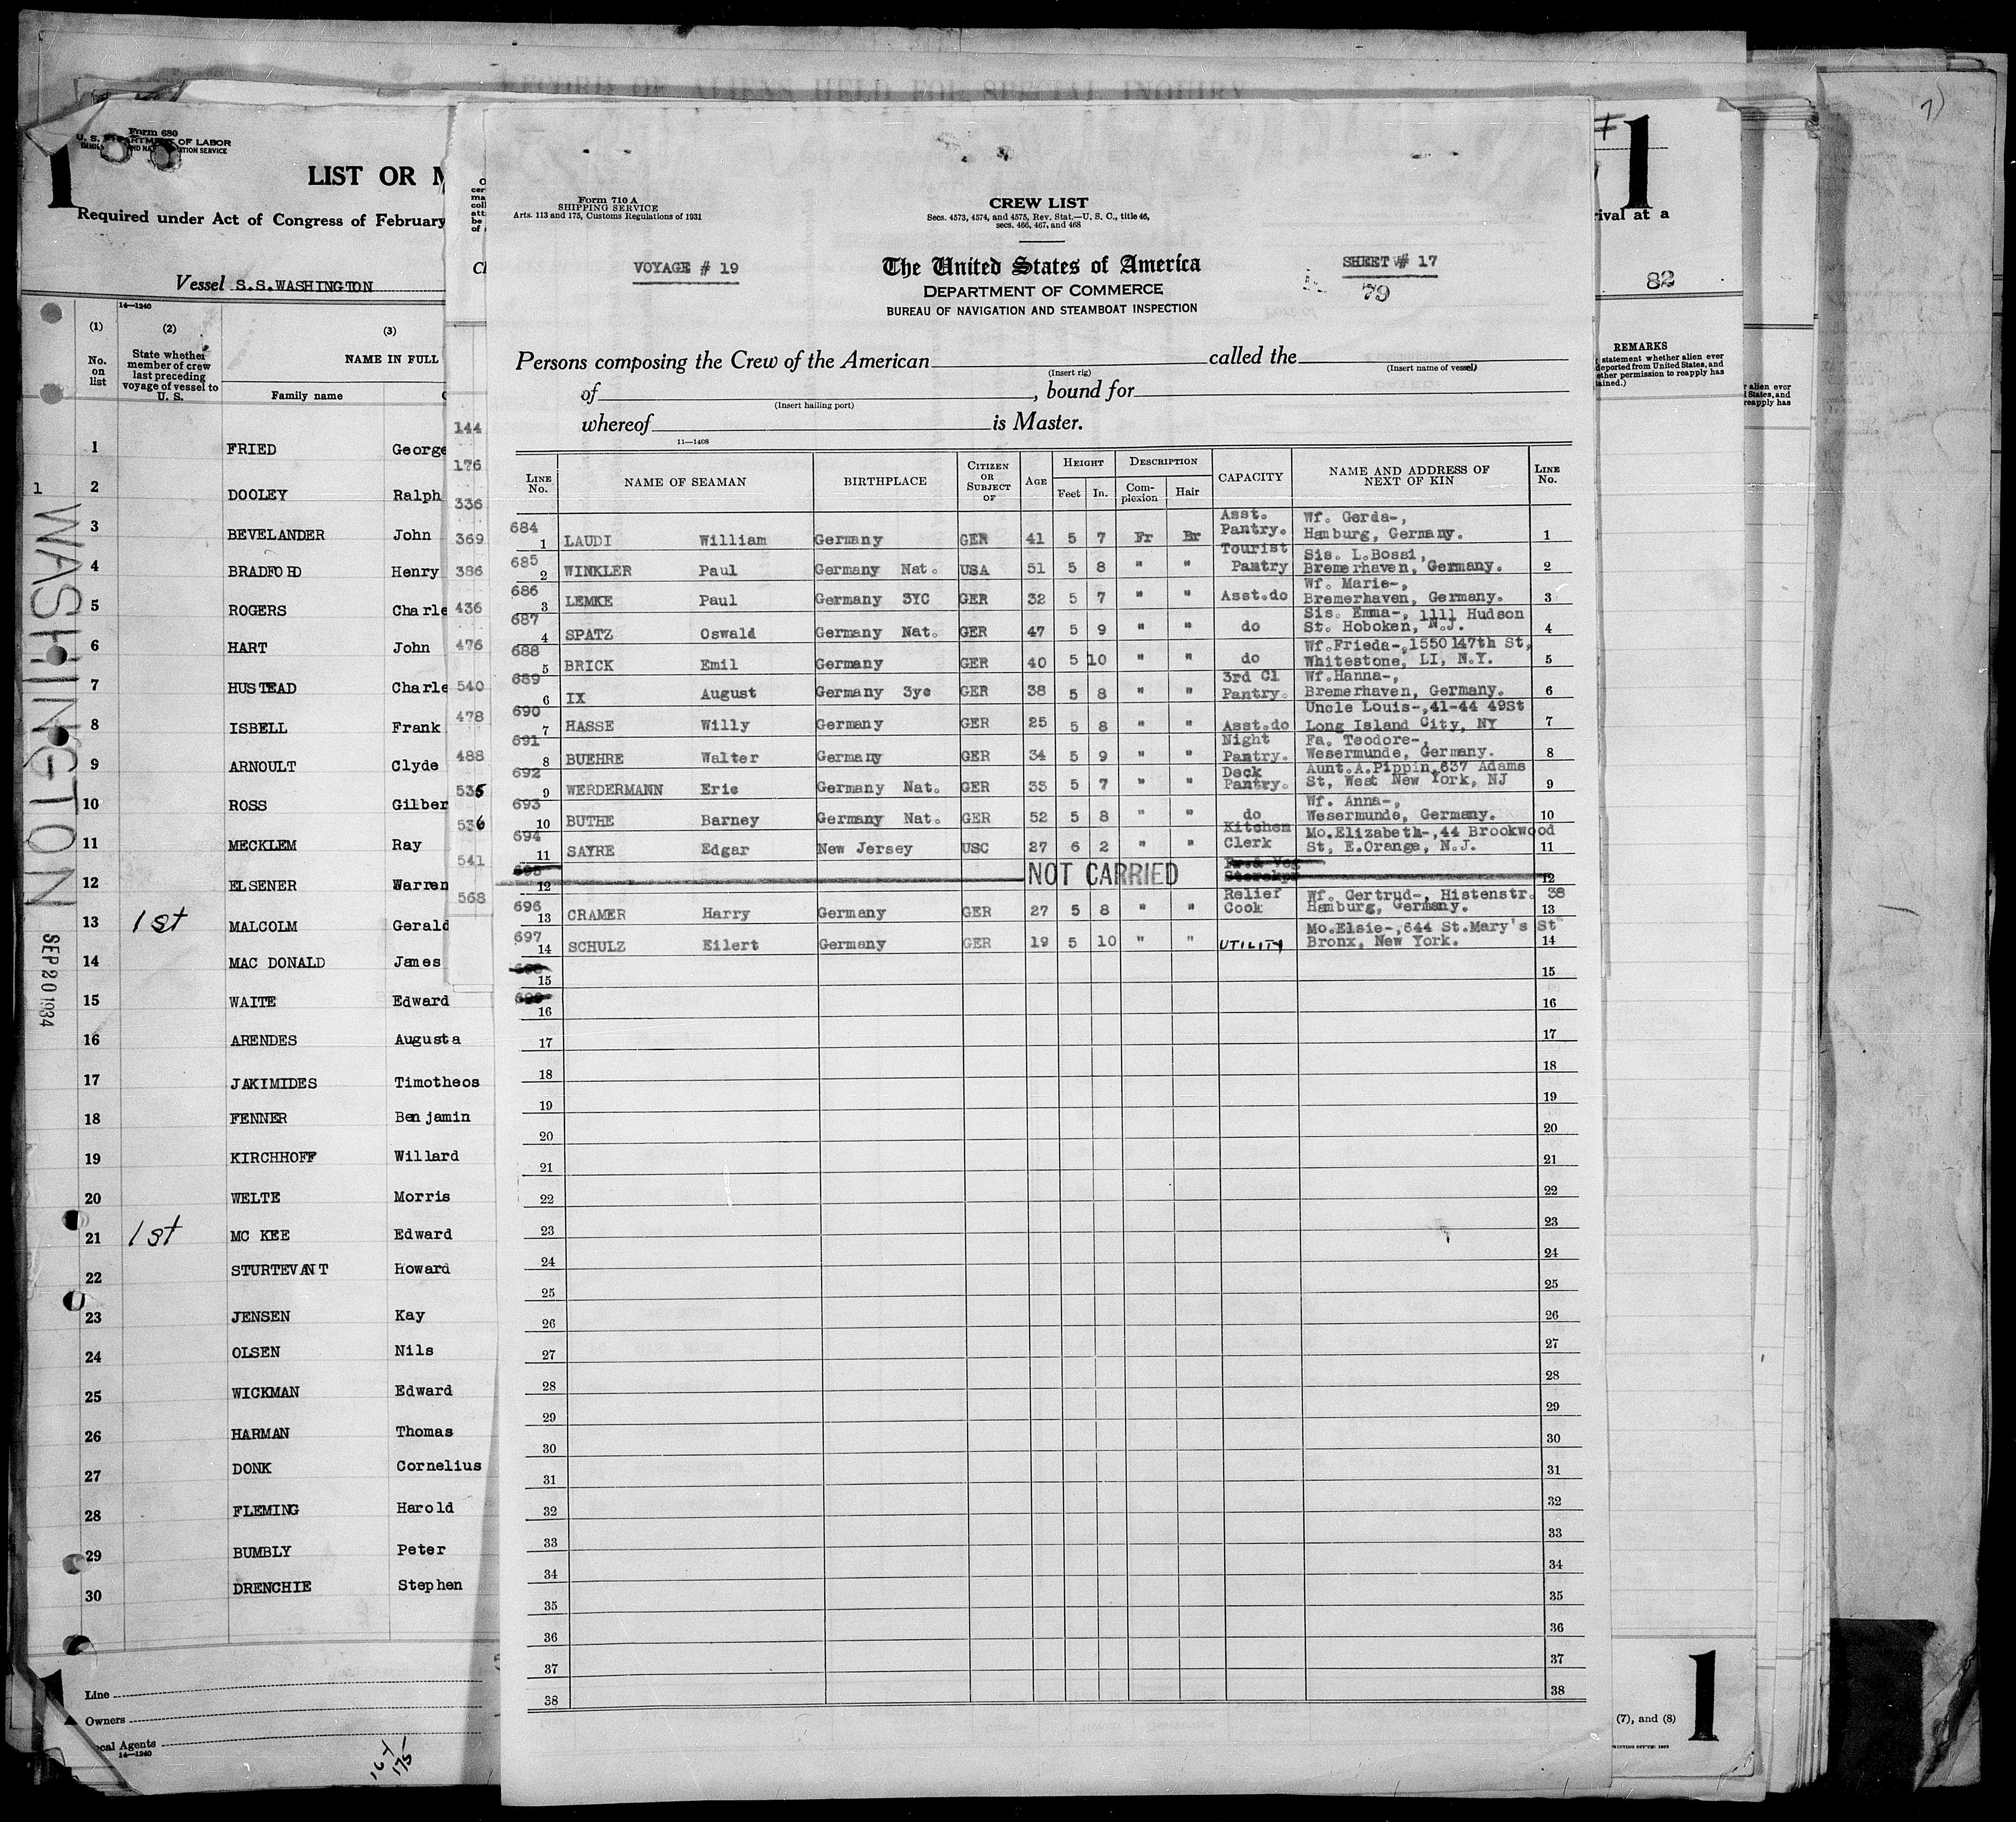 RECORD OF ALIENS HELD FOR SPECIAL INQUIRY
1
Form 680
U. S. DEPARTMENT OF LABOR
LIST OR M
Required under Act of Congress of February
Vessel S.S.WASHINGTON
14—1240
(1) (2) (3)
No. on list
State whether member of crew last preceding voyage of vessel to U. S.
NAME IN FULL
Family name
1 FRIED George
2 DOOLEY Ralph
3 BEVELANDER John
4 BRADFORD Henry
5 ROGERS Charle
6 HART John
7 HUSTEAD Charle
8 ISBELL Frank
9 ARNOULT Clyde
10 ROSS Gilber
11 MECKLEM Ray
12 ELSENER Warren
13 1st MALCOLM Gerald
14 MAC DONALD James
15 WAITE Edward
16 ARENDES Augusta
17 JAKIMIDES Timotheos
18 FENNER Benjamin
19 KIRCHHOFF Willard
20 WELTE Morris
21 1st MC KEE Edward
22 STURTEVANT Howard
23 JENSEN Kay
24 OLSEN Nils
25 WICKMAN Edward
26 HARMAN Thomas
27 DONK Cornelius
28 FLEMING Harold
29 BUMBLY Peter
30 DRENCHIE Stephen
Line
Owners
Local Agents
14—1240
164
175
1
WASHINGTON
SEP 20 1934
144
176
336
369
386
436
476
540
478
488
535
536
541
568
Form 710 A
SHIPPING SERVICE
Arts. 113 and 175, Customs Regulations of 1931
CREW LIST
Secs. 4573, 4574, and 4575, Rev. Stat.—U. S. C., title 46,
secs. 466, 467, and 468
VOYAGE # 19
The United States of America
SHEET # 17
79
DEPARTMENT OF COMMERCE
BUREAU OF NAVIGATION AND STEAMBOAT INSPECTION
Persons composing the Crew of the American called the
(Insert rig) (Insert name of vessel)
of , bound for
(Insert hailing port)
whereof is Master.
11—1408
LINE No. NAME OF SEAMAN BIRTHPLACE CITIZEN OR SUBJECT OF AGE HEIGHT Feet In. DESCRIPTION Complexion Hair CAPACITY NAME AND ADDRESS OF NEXT OF KIN LINE No.
684 1 LAUDI William Germany GER 41 5 7 Fr Br Asst. Pantry. Wf. Gerda-, Hamburg, Germany. 1
685 2 WINKLER Paul Germany Nat. USA 51 5 8 " " Tourist Pantry Sis. L.Bossi, Bremerhaven, Germany. 2
686 3 LEMKE Paul Germany 3YC GER 32 5 7 " " Asst.do Wf. Marie-, Bremerhaven, Germany. 3
687 4 SPATZ Oswald Germany Nat. GER 47 5 9 " " do Sis. Emma-, 1111 Hudson St. Hoboken, N.J. 4
688 5 BRICK Emil Germany GER 40 5 10 " " do Wf.Frieda-,1550 147th St, Whitestone, LI, N.Y. 5
689 6 IX August Germany 3yc GER 38 5 8 " " 3rd Cl Pantry. Wf.Hanna-, Bremerhaven, Germany. 6
690 7 HASSE Willy Germany GER 25 5 8 " " Asst.do Uncle Louis-,41-44 49St Long Island City, NY 7
691 8 BUEHRE Walter Germany GER 34 5 9 " " Night Pantry. Fa. Teodore-, Wesermunde, Germany. 8
692 9 WERDERMANN Eric Germany Nat. GER 33 5 7 " " Deck Pantry. Aunt.A.Pippin,637 Adams St, West New York, NJ 9
693 10 BUTHE Barney Germany Nat. GER 52 5 8 " " do Wf. Anna-, Wesermunde, Germany. 10
694 11 SAYRE Edgar New Jersey USC 27 6 2 " " Kitchen Clerk Mo.Elizabeth-,44 Brookwood St, E.Orange, N.J. 11
695 12 NOT CARRIED Storekpr 12
696 13 CRAMER Harry Germany GER 27 5 8 " " Relief Cook Wf. Gertrud-, Histenstr. 38 Hamburg, Germany. 13
697 14 SCHULZ Eilert Germany GER 19 5 10 " " UTILITY Mo.Elsie-,644 St.Mary's St Bronx, New York. 14
698 15 15
699 16 16
17 17
18 18
19 19
20 20
21 21
22 22
23 23
24 24
25 25
26 26
27 27
28 28
29 29
30 30
31 31
32 32
33 33
34 34
35 35
36 36
37 37
38 38
1
rival at a
82
REMARKS
statement whether alien ever
deported from United States, and
ether permission to reapply has
tained.)
r alien ever
States, and
reapply has
(7), and (8)
1